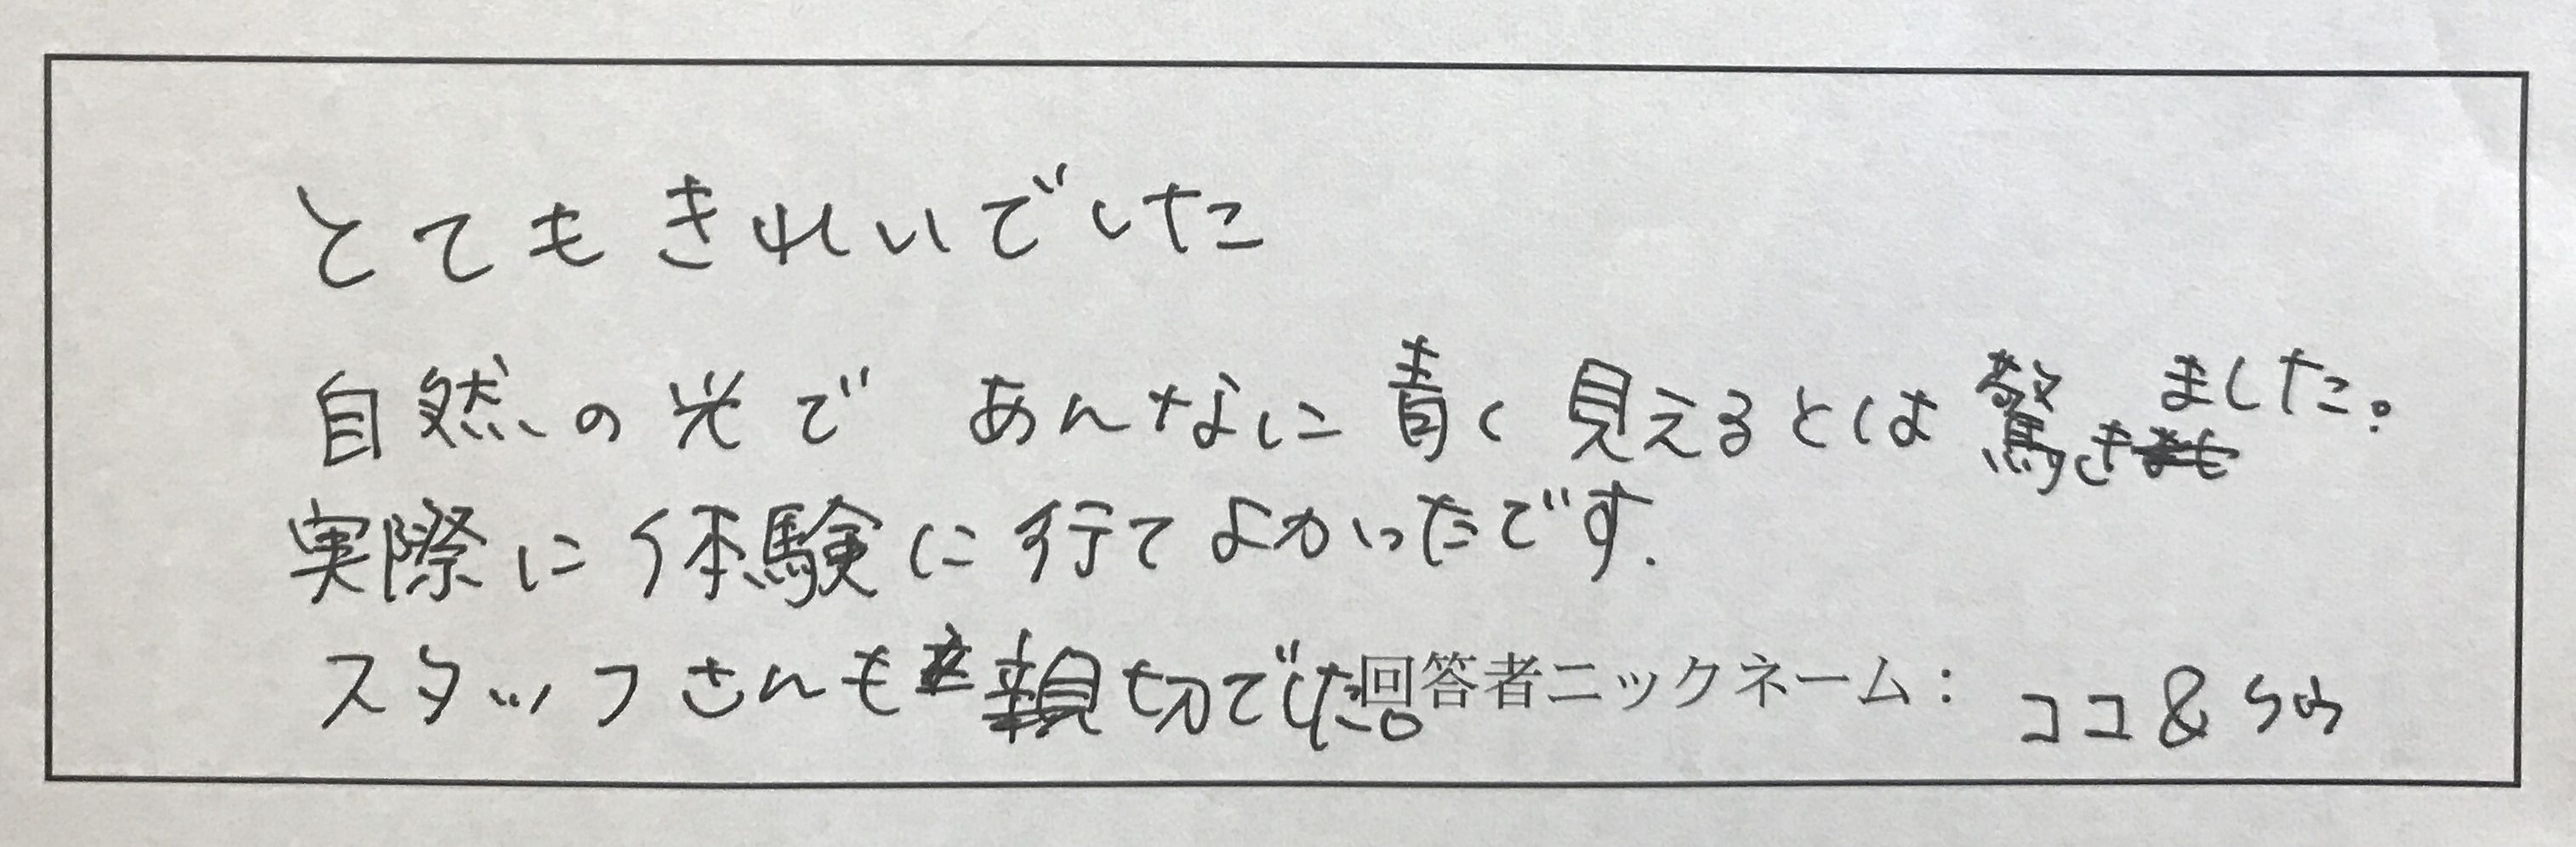 とてもきれいでした
自然の光で あんなに青く見えるとは驚きました。
実際に体験に行てよかったです.
スタッフさんも親切でした。
回答者ニックネーム: ココ&